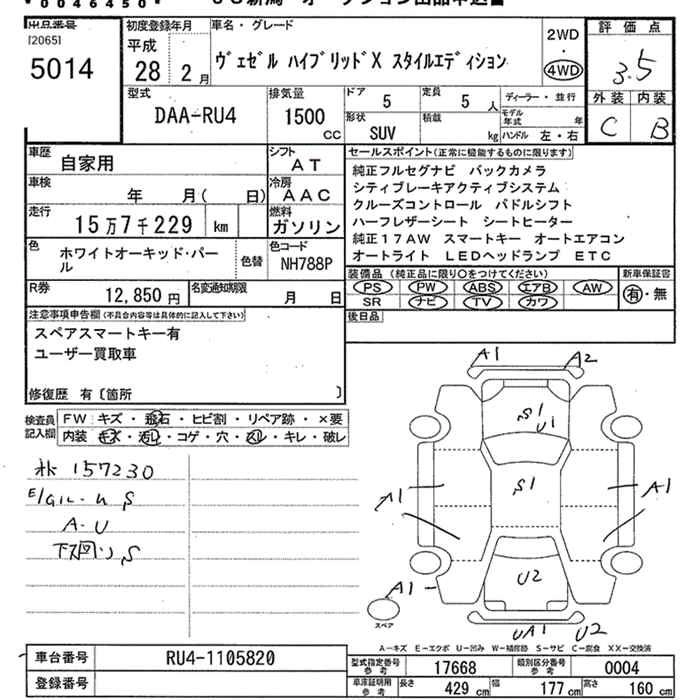 *0046450*
出品番号
[2065]
5014
初度登録年月
平成
28年2月
車名・グレード
ヴェゼル ハイブリッドX スタイルエディション
2WD
・
4WD
評価点
3.5
外装 内装
C B
型式
DAA-RU4
排気量
1500
cc
ドア 5
定員 5人
形状
SUV
積載 kg
ディーラー・並行
モデル年式 年
ハンドル 左・右
車歴 自家用
車検 年 月( 日)
走行 15万7千229 km
色 ホワイトオーキッド・パール
色替
シフト AT
冷房 AAC
燃料 ガソリン
色コード NH788P
R券 12,850円
名変通知期限 月 日
セールスポイント(正常に機能するものに限ります)
純正フルセグナビ バックカメラ
シティブレーキアクティブシステム
クルーズコントロール パドルシフト
ハーフレザーシート シートヒーター
純正17AW スマートキー オートエアコン
オートライト LEDヘッドランプ ETC
装備品(純正品に限り○をつけてください)
PS PW ABS エアB AW
SR ナビ TV カワ
新車保証書
有・無
後日品
注意事項申告欄(不具合内容等は具体的に記入して下さい)
スペアスマートキー有
ユーザー買取車
修復歴 有〔箇所 〕
検査員記入欄
FW キズ・飛石・ヒビ割・リペア跡・×要
内装 キズ・汚れ・コゲ・穴・スレ・キレ・破レ
157230
A-U
下回り S
A1 A2
S1
U1
A1
S1
A1
U2
A1
スペア
UA1 U2
A-キズ E-エクボ U-凹み W-補修跡 S-サビ C-腐食 XX-交換済
車台番号 RU4-1105820
登録番号
型式指定番号 参考 17668
類別区分番号 参考 0004
車庫証明用 参考 長さ 429 cm 幅 177 cm 高さ 160 cm